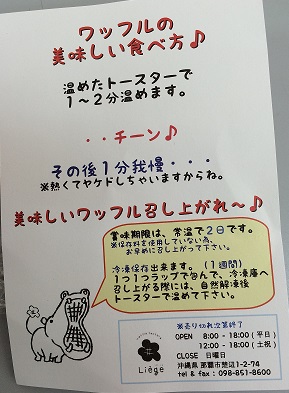 ワッフルの
美味しい食べ方♪
温めたトースターで
1〜2分温めます。
・・チーン♪
その後1分我慢・・・
※熱くてヤケドしちゃいますからね。
美味しいワッフル召し上がれ〜♪
賞味期限は、常温で2日です。
※保存料を使用していない為、
お早めに召し上がって下さい。
冷凍保存出来ます。(1週間)
1つ1つラップで包んで、冷凍庫へ
召し上がる際には、自然解凍後
トースターで温めて下さい。
Liège
※売り切れ次第終了
OPEN 8:00 - 18:00 (平日)
12:00 - 18:00 (土祝)
CLOSE 日曜日
沖縄県 那覇市楚辺1-2-74
tel & fax : 098-851-8600